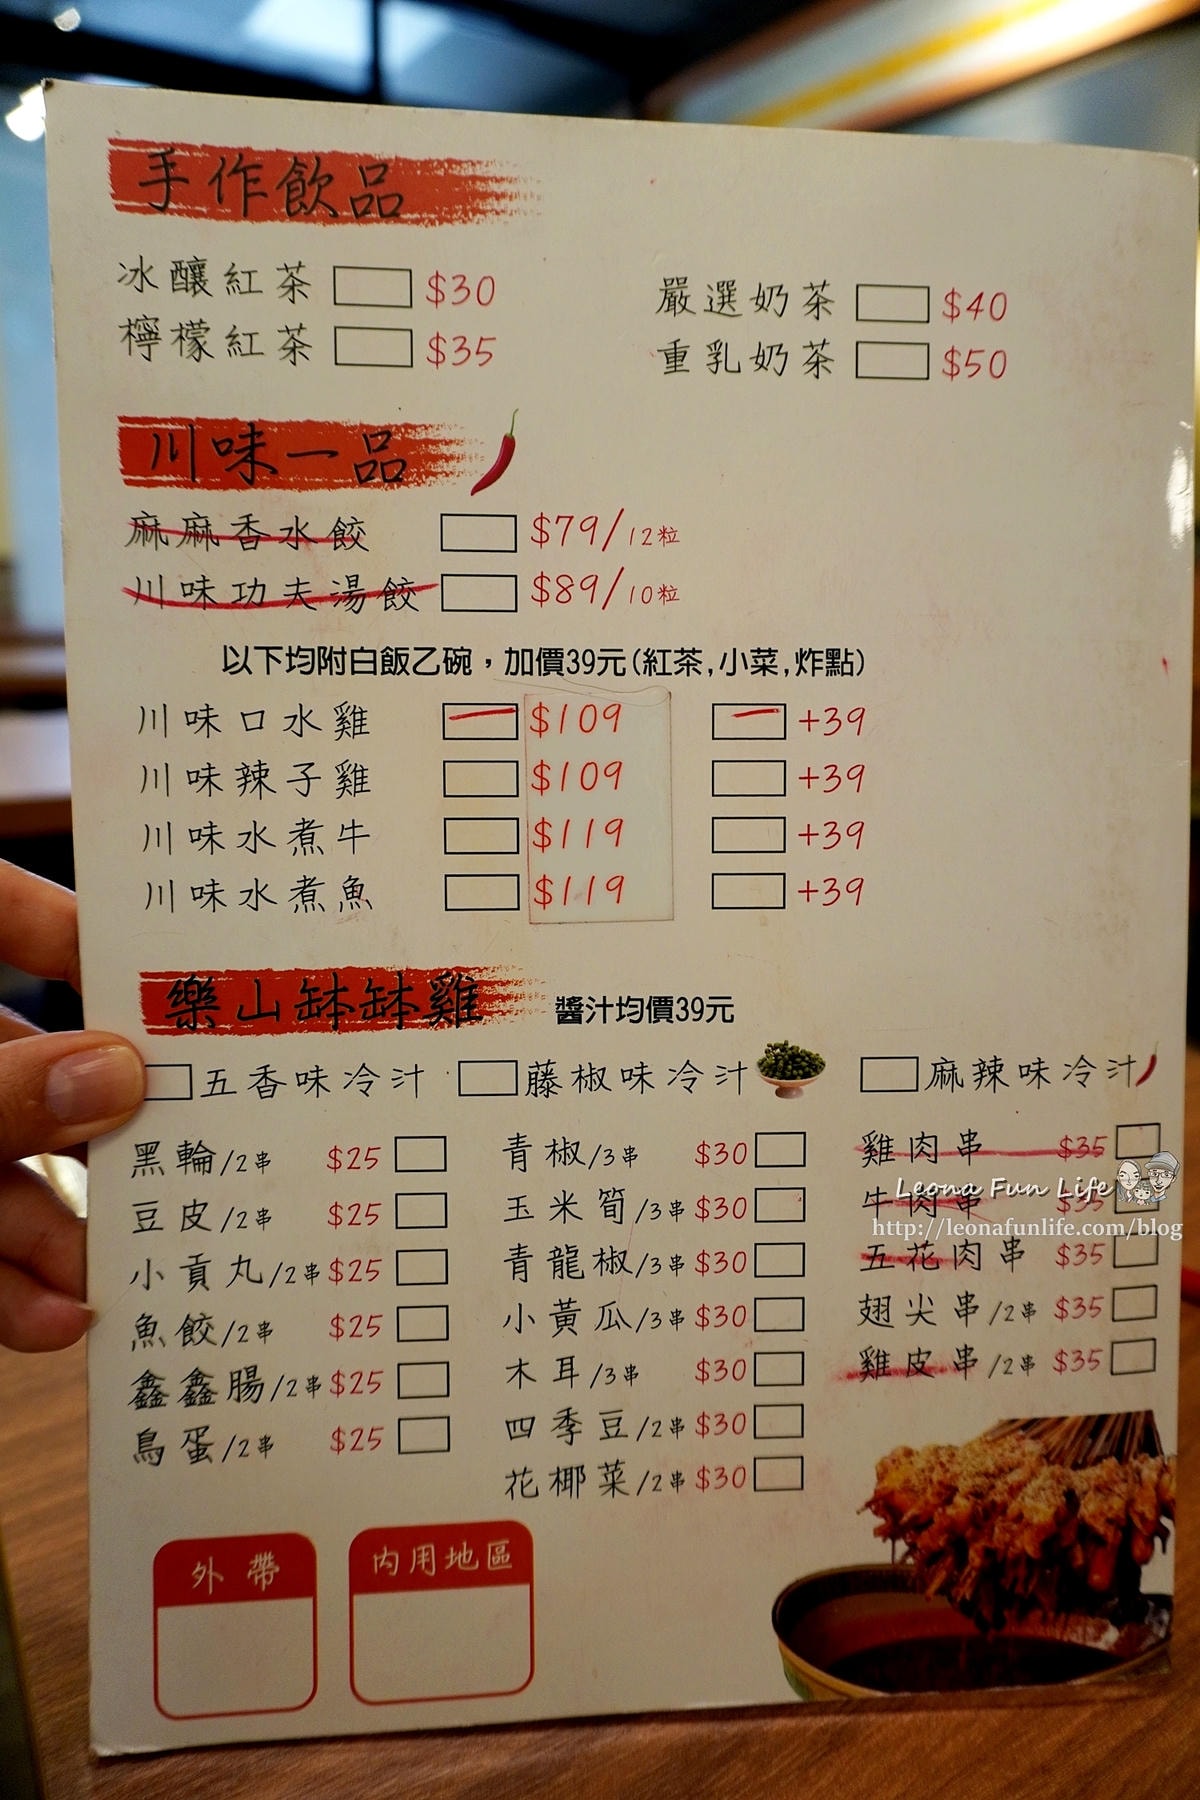 手作飲品
冰釀紅茶 $30 嚴選奶茶 $40
檸檬紅茶 $35 重乳奶茶 $50
川味一品
麻麻香水餃 $79/12粒
川味功夫湯餃 $89/10粒
以下均附白飯乙碗，加價39元(紅茶,小菜,炸點)
川味口水雞 $109 +39
川味辣子雞 $109 +39
川味水煮牛 $119 +39
川味水煮魚 $119 +39
樂山缽缽雞 醬汁均價39元
五香味冷汁 藤椒味冷汁 麻辣味冷汁
黑輪/2串 $25 青椒/3串 $30 雞肉串 $35
豆皮/2串 $25 玉米筍/3串 $30 牛肉串 $35
小貢丸/2串 $25 青龍椒/3串 $30 五花肉串 $35
魚餃/2串 $25 小黃瓜/3串 $30 翅尖串/2串 $35
鑫鑫腸/2串 $25 木耳/3串 $30 雞皮串/2串 $35
鳥蛋/2串 $25 四季豆/2串 $30
花椰菜/2串 $30
外帶 內用地區
Leona Fun Life
http://leonafunlife.com/blog